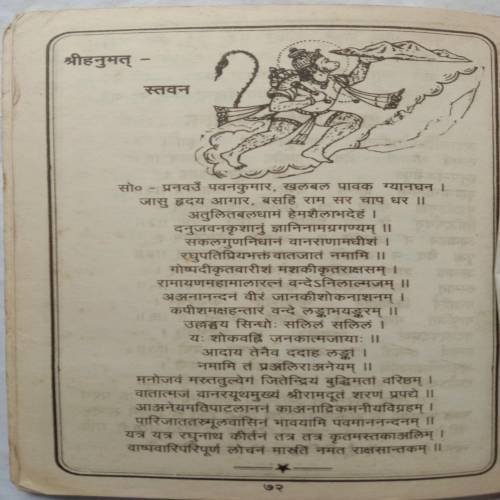 श्रीहनुमत् -
स्तवन
सो० - प्रनवउँ पवनकुमार, खलबल पावक ग्यानघन ।
जासु हृदय आगार, बसहिं राम सर चाप धर ॥
अतुलितबलधामं हेमशैलाभदेहं ।
दनुजवनकृशानुं ज्ञानिनामग्रगण्यम् ॥
सकलगुणनिधानं वानराणामधीशं ।
रघुपतिप्रियभक्तं वातजातं नमामि ॥
गोष्पदीकृतवारीशं मशकीकृतराक्षसम् ।
रामायणमहामालारत्नं वन्देऽनिलात्मजम् ॥
अञ्जनानन्दनं वीरं जानकीशोकनाशनम् ।
कपीशमक्षहन्तारं वन्दे लङ्काभयङ्करम् ॥
उल्लङ्घ्य सिन्धोः सलिलं सलिलं ।
यः शोकवह्निं जनकात्मजायाः ॥
आदाय तेनैव ददाह लङ्कां ।
नमामि तं प्राञ्जलिराञ्जनेयम् ॥
मनोजवं मारुततुल्वेगं जितेन्द्रियं बुद्धिमतां वरिष्ठम् ।
वातात्मजं वानरयूथमुख्यं श्रीरामदूतं शरणं प्रपद्ये ॥
आञ्जनेयमतिपाटलाननं काञ्चनाद्रिकमनीयविग्रहम् ।
पारिजाततरुमूलवासिनं भावयामि पवमाननन्दनम् ॥
यत्र यत्र रघुनाथ कीर्तनं तत्र तत्र कृतमस्तकाञ्जलिम् ।
वाष्पवारिपरिपूर्ण लोचनं मारुतिं नमत राक्षसान्तकम् ॥
७२